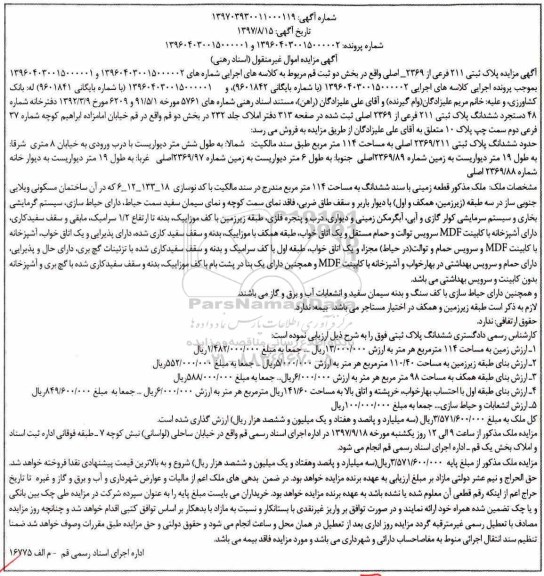 شماره آگهی: ۱۳۹۷۰۳۹۳۰۰۱۱۰۰۰۱۱۹
تاریخ آگهی: ۱۳۹۷/۸/۱۵
شماره پرونده: ۱۳۹۶۰۴۰۳۰۰۱۵۰۰۰۰۰۲ و ۱۳۹۶۰۴۰۳۰۰۱۵۰۰۰۰۰۱
آگهی مزایده اموال غیرمنقول (اسناد رهنی)
آگهی مزایده پلاک ثبتی ۲۱۱ فرعی از ۲۳۶۹_ اصلی واقع در بخش دو ثبت قم مربوط به کلاسه های اجرایی شماره های ۱۳۹۶۰۴۰۳۰۰۱۵۰۰۰۰۰۲ و ۱۳۹۶۰۴۰۳۰۰۱۵۰۰۰۰۰۱
بموجب پرونده اجرایی کلاسه های اجرایی ۱۳۹۶۰۴۰۳۰۰۱۵۰۰۰۰۰۲ (با شماره بایگانی ۹۶۰۱۸۴۲)، و ۱۳۹۶۰۴۰۳۰۰۱۵۰۰۰۰۰۱ (با شماره بایگانی ۹۶۰۱۸۴۱) له: بانک
کشاورزی، و علیه: خانم مریم علیزادگان(وام گیرنده) و آقای علی علیزادگان (راهن)، مستند اسناد رهنی شماره های ۵۷۶۱ مورخه ۹۱/۵/۱ و ۶۲۰۹ مورخ ۱۳۹۲/۳/۹ دفترخانه شماره
۴۸ دستجرد ششدانگ پلاک ثبتی ۲۱۱ فرعی از ۲۳۶۹ اصلی ثبت شده در صفحه ۳۱۳ دفتر املاک جلد ۲۳۲ در بخش دو قم واقع در قم خیابان امامزاده ابراهیم کوچه شماره ۳۷
فرعی دوم سمت چپ پلاک ۱۰ متعلق به آقای علی علیزادگان از طریق مزایده به فروش می رسد:
حدود ششدانگ پلاک ثبتی ۲۳۶۹/۲۱۱ اصلی به مساحت ۱۱۴ متر مربع طبق سند مالکیت: شمالا: به طول شش متر دیواریست با درب ورودی به خیابان ۸ متری شرقا:
به طول ۱۹ متر دیواریست به زمین شماره ۲۳۶۹/۸۹اصلی جنوبا: به طول ۶ متر دیواریست به زمین شماره ۲۳۶۹/۹۷اصلی غربا: به طول ۱۹ متر دیواریست به دیوار خانه
شماره ۲۳۶۹/۸۸ اصلی
مشخصات ملک: ملک مذکور قطعه زمینی با سند ششدانگ به مساحت ۱۱۴ متر مربع مندرج در سند مالکیت با کد نوسازی ۱۸_۱۳۳_۱۲_۶ که در آن ساختمان مسکونی ویلایی
جنوبی ساز در سه طبقه (زیرزمین، همکف و اول) با دیوار باربر و سقف طاق ضربی، فاقد نمای سمت کوچه و نمای سیمان سفید سمت حیاط، دارای حیاط سازی، سیستم گرمایشی
بخاری و سیستم سرمایشی کولر گازی و آبی، آبگرمکن زمینی و دیواری، درب و پنجره فلزی، طبقه زیرزمین با کف موزاییک، بدنه تا ارتفاع ۱/۲ سرامیک، مابقی و سقف سفیدکاری،
دارای آشپزخانه با کابینت MDF سرویس توالت و حمام مستقل و یک اتاق خواب، طبقه همکف با موزاییک، بدنه و سقف سفید کاری شده، دارای پذیرایی و یک اتاق خواب، آشپزخانه
با کابینت MDF و سرویس حمام و توالت(در حیاط) مجزا، و یک اتاق خواب، طبقه اول با کف سرامیک و بدنه و سقف سفیدکاری شده با تزئینات گچ بری، دارای حال و پذیرایی،
دارای حمام و سرویس بهداشتی در بهارخواب و آشپزخانه با کابینت MDF و همچنین دارای یک بنا در پشت بام با کف موزاییک، بدنه و سقف سفیدکاری شده با گچ بری و آشپزخانه
بدون کابینت و سرویس بهداشتی می باشد.
و همچنین دارای حیاط سازی با کف سنگ و بدنه سیمان سفید و انشعابات آب و برق و گاز می باشند.
لازم به ذکر است طبقه زیرزمین و همکف در اختیار مستاجر می باشد. بیمه: ندارد.
حقوق ارتفاقی: ندارد.
کارشناس رسمی دادگستری ششدانگ پلاک ثبتی فوق را به شرح ذیل ارزیابی نموده است:
۱_ ارزش زمین به مساحت ۱۱۴ مترمربع هر متر به ارزش ۱۳/۰۰۰/۰۰۰ریال ... جمعا به مبلغ ۱/۴۸۲/۰۰۰/۰۰۰ریال
۲_ ارزش بنای طبقه زیرزمین به مساحت ۱۱۰/۴۰ مترمربع هر متر به ارزش ۵/۰۰۰/۰۰۰ریال.. جمعا به مبلغ ۵۵۲/۰۰۰/۰۰۰ریال
۳_ ارزش بنای طبقه همکف به مساحت ۹۸ متر مربع هر متر به ارزش ۶/۰۰۰/۰۰۰ریال.. جمعا به مبلغ ۵۸۸/۰۰۰/۰۰۰ریال
۴_ ارزش بنای طبقه اول با احتساب بهارخواب، خرپشته و اتاق بالا به مساحت ۱۴۱/۶۰ مترمربع هر متر به ارزش ۶/۰۰۰/۰۰۰ریال .. جمعا به مبلغ ۸۴۹/۶۰۰/۰۰۰ریال
۵_ ارزش انشعابات و حیاط سازی... جمعا به مبلغ ۱۰۰/۰۰۰/۰۰۰ریال
کل ملک به مبلغ ۳/۵۷۱/۶۰۰/۰۰۰ریال (سه میلیارد و پانصد و هفتاد و یک میلیون و ششصد هزار ریال) ارزش گذاری شده است.
مزایده ملک مذکور از ساعت ۹ الی ۱۲ روز یکشنبه مورخه ۱۳۹۷/۹/۱۸ در اداره اجرای اسناد رسمی قم واقع در خیابان ساحلی (لواسانی) نبش کوچه ۷ _طبقه فوقانی اداره ثبت اسناد
و املاک بخش یک قم _ اداره اجرای اسناد رسمی قم انجام می شود.
مزایده ملک مذکور از مبلغ پایه ۳/۵۷۱/۶۰۰/۰۰۰ریال(سه میلیارد و پانصد وهفتاد و یک میلیون و ششصد هزار ریال) شروع و به بالاترین قیمت پیشنهادی نقدا فروخته خواهد شد.
حق الحراج و نیم عشر دولتی مازاد بر مبلغ ارزیابی به عهده برنده مزایده خواهد بود. در ضمن بدهی های ملک اعم از مالیات و عوارض شهرداری و آب و برق و گاز و غیره تا تاریخ
حراج اعم از اینکه رقم قطعی آن معلوم شده یا نشده باشد به عهده برنده مزایده خواهد بود. خریداران می بایست مبلغ پایه را به عنوان سپرده شرکت در مزایده طی چک بین بانکی
و یا چک تضمین شده همراه خود ارائه نمایند و در صورت توافق بر واریز غیرنقدی با بستانکار و نسبت به مازاد با بدهکار بر اساس توافق کتبی اقدام خواهد شد و چنانچه روز مزایده
مصادف با تعطیل رسمی غیرمترقبه گردد مزایده روز اداری بعد از تعطیل در همان محل و ساعت انجام می شود و حقوق دولتی و حق مزایده طبق مقررات وصول خواهد شد ضمنا
تنظیم سند انتقال اجرائی منوط به مفاصاحساب دارائی و شهرداری می باشد و مورد مزایده فاقد بیمه می باشد.
اداره اجرای اسناد رسمی قم - م الف ۱۶۷۷۵